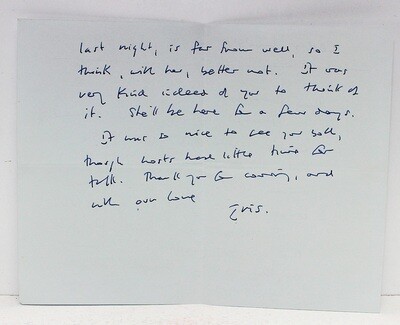 last night, is far from well, so I
think, with her, better not. It was
very kind indeed of you to think of
it. She'll be here for a few days.
It was so nice to see you both,
though hosts have little time for
talk. Thank you for coming, and
with our love
Iris.